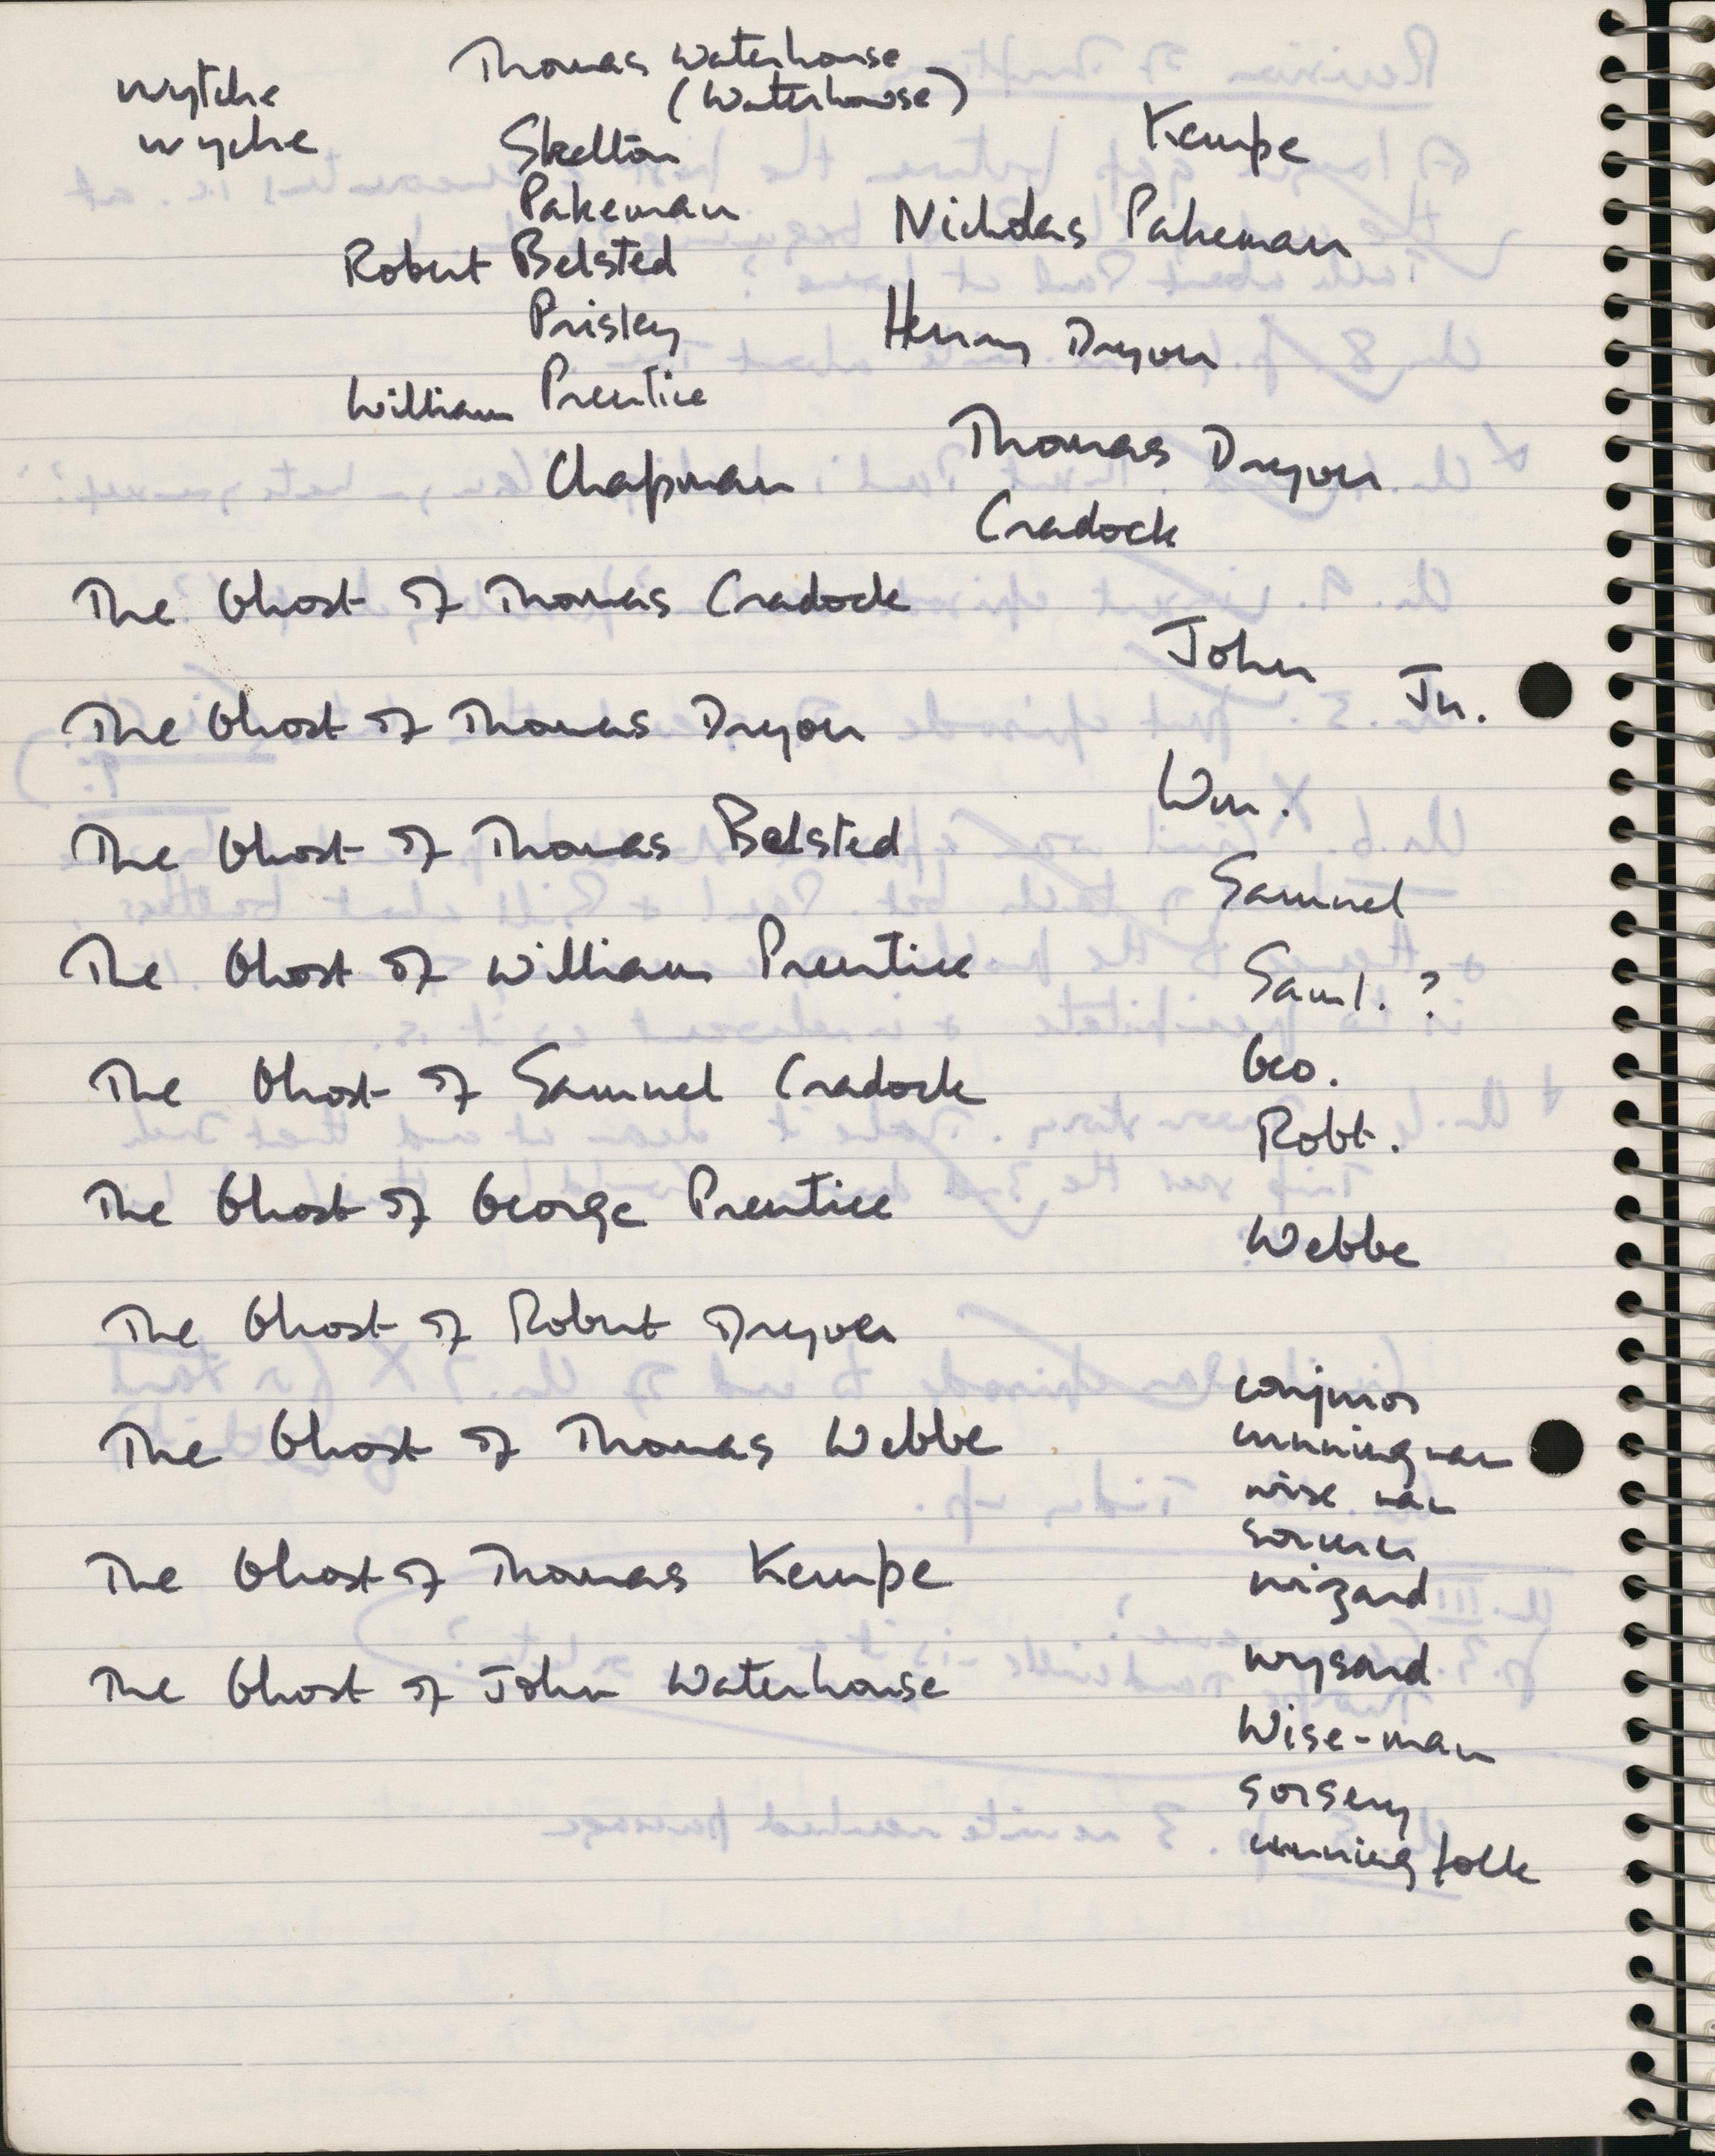 wytche
wyche
Thomas Waterhouse
(Waterhowse)
Skelton
Pakeman
Robert Belsted
Prisley
William Prentice
Chapman
Kempe
Nicholas Pakeman
Henry Dryver
Thomas Dryver
Cradock
The Ghost of Thomas Cradock
The Ghost of Thomas Dryver
The Ghost of Thomas Belsted
The Ghost of William Prentice
The Ghost of Samuel Cradock
The Ghost of George Prentice
The Ghost of Robert Dryver
The Ghost of Thomas Webbe
The Ghost of Thomas Kempe
The Ghost of John Waterhouse
John
Jn.
Wm.
Samuel
Saml. ?
Geo.
Robt.
Webbe
conjuror
cunning man
wise man
sorcerer
wizard
wysard
Wise-man
sorsery
cunning folk